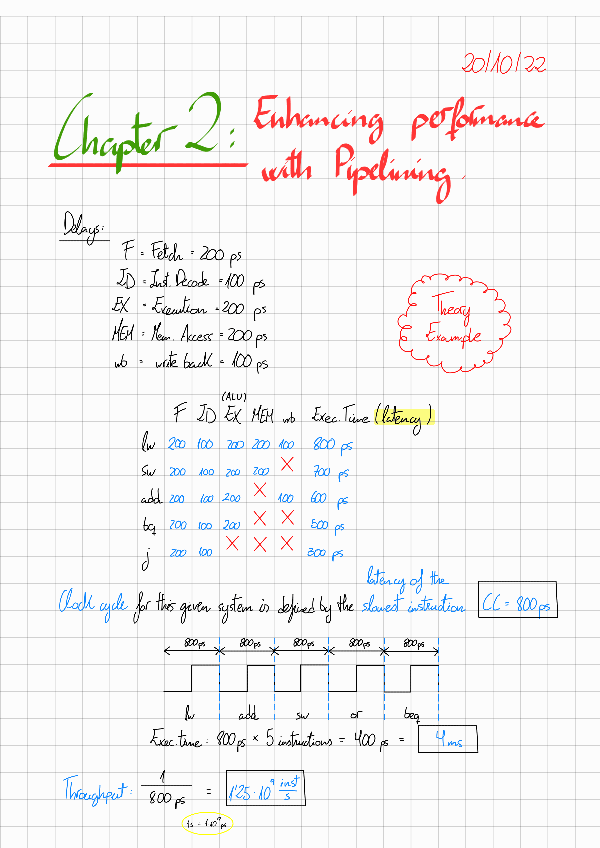 20/10/22
Chapter 2: Enhancing performance
with Pipelining.
Delays:
F = Fetch = 200 ps
ID = Inst. Decode = 100 ps
EX = Execution = 200 ps
MEM = Mem. Access = 200 ps
wb = write back = 100 ps
Theory
Example
(ALU)
F ID EX MEM wb Exec. Time (latency)
lw 200 100 200 200 100 800 ps
sw 200 100 200 200 X 700 ps
add 200 100 200 X 100 600 ps
beq 200 100 200 X X 500 ps
j 200 100 X X X 300 ps
latency of the
Clock cycle for this given system is defined by the slowest instruction CC = 800 ps
800 ps 800 ps 800 ps 800 ps 800 ps
lw add sw or beq
Exec. time: 800 ps × 5 instructions = 400 ps = 4 ms
Throughput: 1 / 800 ps = 1'25 · 10⁹ inst / s
1s = 1·10⁹ ps